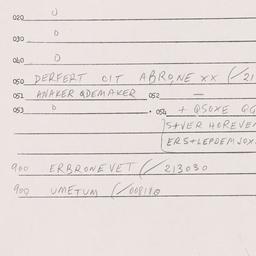 020 0
030 0
040 0
050 DERFERT OIT ABRONE XX (/21
051 ANAKER QDEMAKER 052 —
053 0 · 054 + QSOXE GG
STVER HOREVEN
ERS+LEPDEMJOX
900 ERBRONEVET (/213030
900 UMETUM (/008180